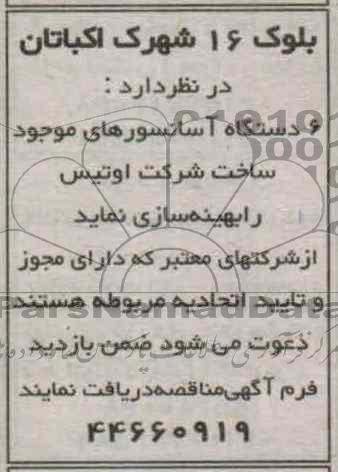 بلوک ۱۶ شهرک اکباتان
در نظردارد :
۶ دستگاه آسانسورهای موجود
ساخت شرکت اوتیس
رابهینه‌سازی نماید
ازشرکتهای معتبر که دارای مجوز
و تایید اتحادیه مربوطه هستند
دعوت می شود ضمن بازدید
فرم آگهی‌مناقصه‌دریافت نمایند
۴۴۶۶۰۹۱۹
ParsNamadData